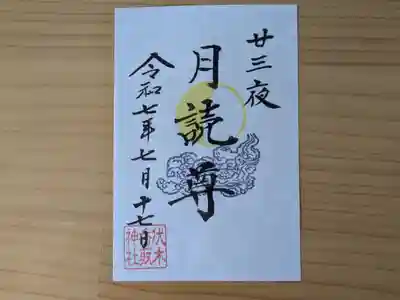 廿三夜
月読尊
令和七年七月十七日
伏木
神社